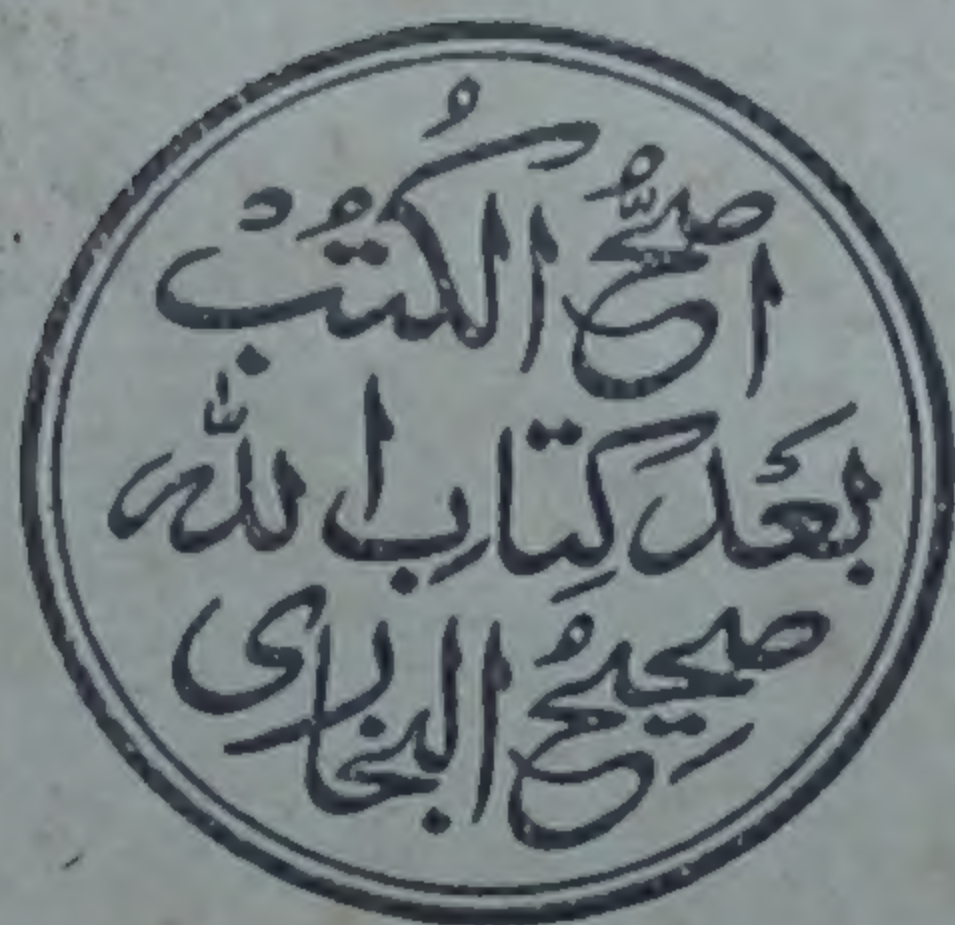 اصَحُّ الكُتُبْ
بَعْدَ كِتَابِ اللّٰه
صحِيحُ البخارى